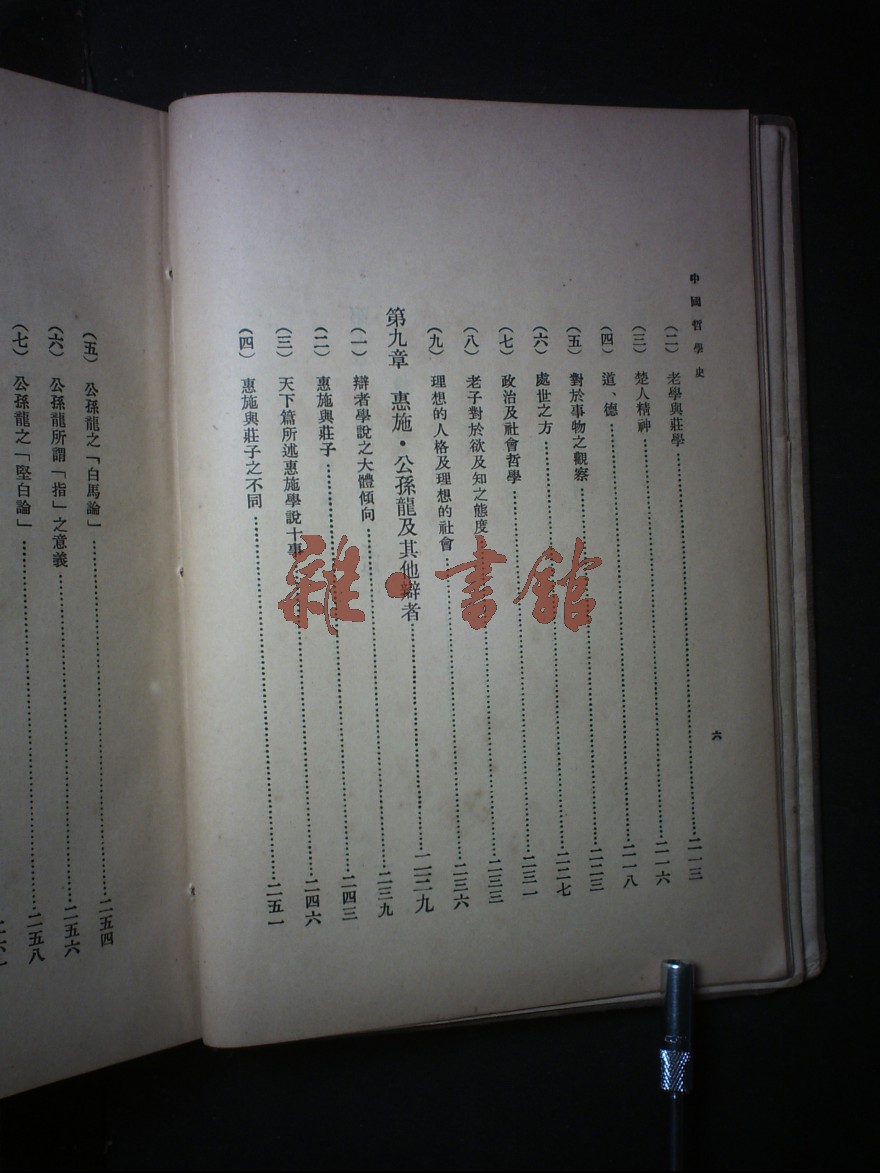 中國哲學史
（二）　老學與莊學……二一三
（三）　楚人精神……二一六
（四）　道、德……二一八
（五）　對於事物之觀察……二二三
（六）　處世之方……二二七
（七）　政治及社會哲學……二三一
（八）　老子對於欲及知之態度……二三三
（九）　理想的人格及理想的社會……二三六
第九章　惠施・公孫龍及其他辯者……二三九
（一）　辯者學說之大體傾向……二三九
（二）　惠施與莊子……二四三
（三）　天下篇所述惠施學說十事……二四六
（四）　惠施與莊子之不同……二五一
六
（五）　公孫龍之「白馬論」……二五四
（六）　公孫龍所謂「指」之意義……二五六
（七）　公孫龍之「堅白論」……二五八
雜·書館